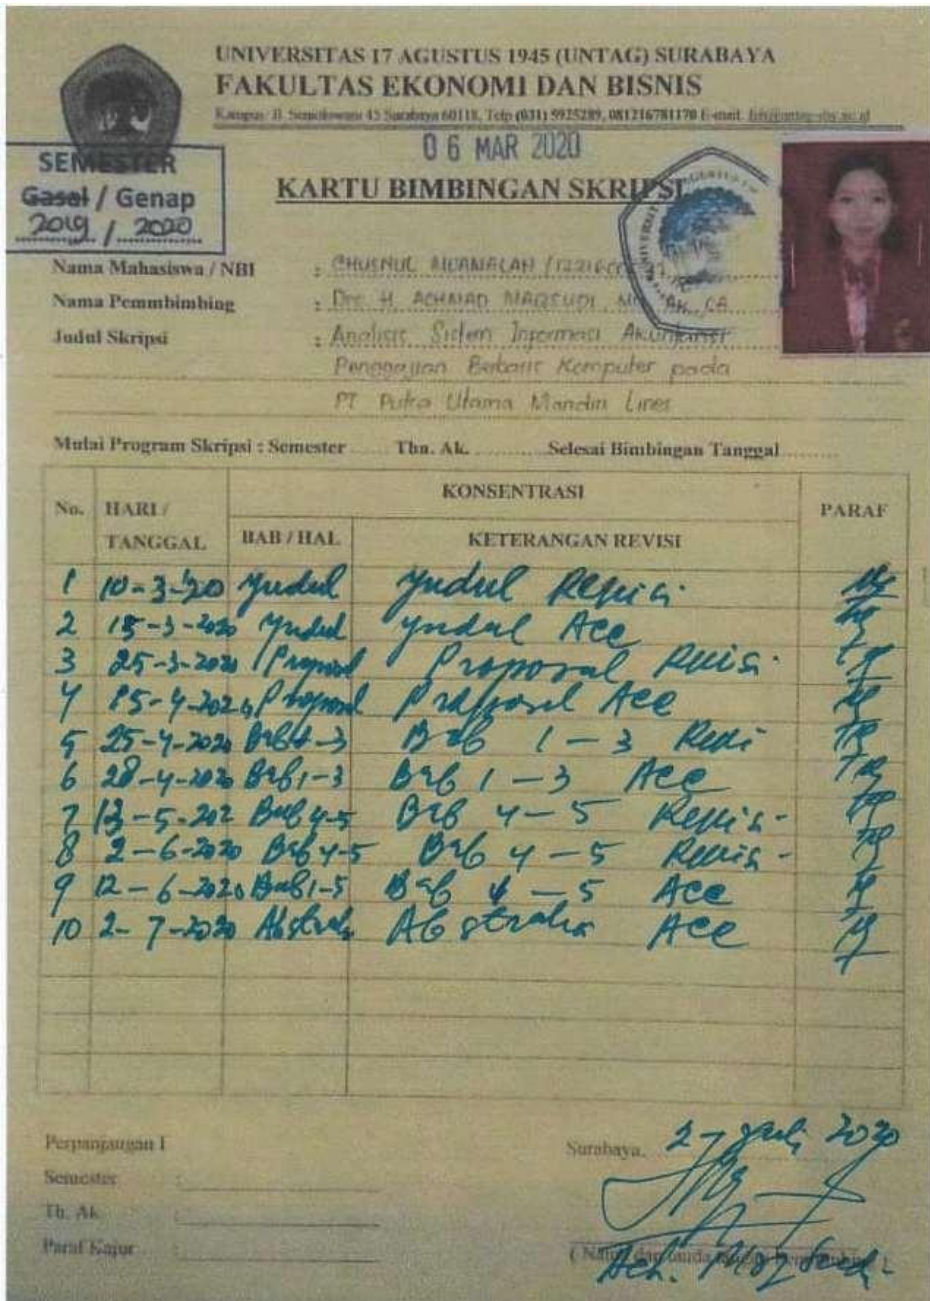 UNIVERSITAS 17 AGUSTUS 1945 (UNTAG) SURABAYA
FAKULTAS EKONOMI DAN BISNIS
Kampus: Jl. Semolowaru 45 Surabaya 60118, Telp (031) 5925289, 081216781170 E-mail.
06 MAR 2020
SEMESTER
Gasal / Genap
2019 / 2020
KARTU BIMBINGAN SKRIPSI
Nama Mahasiswa / NBI : CHUSNUL
Nama Pemmbimbing : Drs. H. ACHMAD MAQSUDI, AK, CA
Judul Skripsi : Analisis Sistem Informasi Akuntansi
Penggajian Berbasis Komputer pada
PT Putra Utama Mandiri Lines
Mulai Program Skripsi : Semester ....... Thn. Ak. ........... Selesai Bimbingan Tanggal .........
No. HARI / TANGGAL KONSENTRASI PARAF
BAB / HAL KETERANGAN REVISI
1 10-3-'20 Judul Judul Revisi
2 15-3-2020 Judul Judul Acc
3 25-3-2020 Proposal Proposal Revisi
4 15-4-2020 Proposal Proposal Acc
5 25-4-2020 Bab 1-3 Bab 1-3 Revi
6 28-4-2020 Bab 1-3 Bab 1-3 Acc
7 13-5-202 Bab 4-5 Bab 4-5 Revisi
8 2-6-2020 Bab 4-5 Bab 4-5 Revisi
9 12-6-2020 Bab 1-5 Bab 4-5 Acc
10 2-7-2020 Abstrak Abstraksi Acc
Perpanjangan I
Surabaya, 2-Juli 2020
Semester :
Th. Ak. :
Paraf Kajur :
( Nama dan tanda tangan )
Ach. Maqsudi